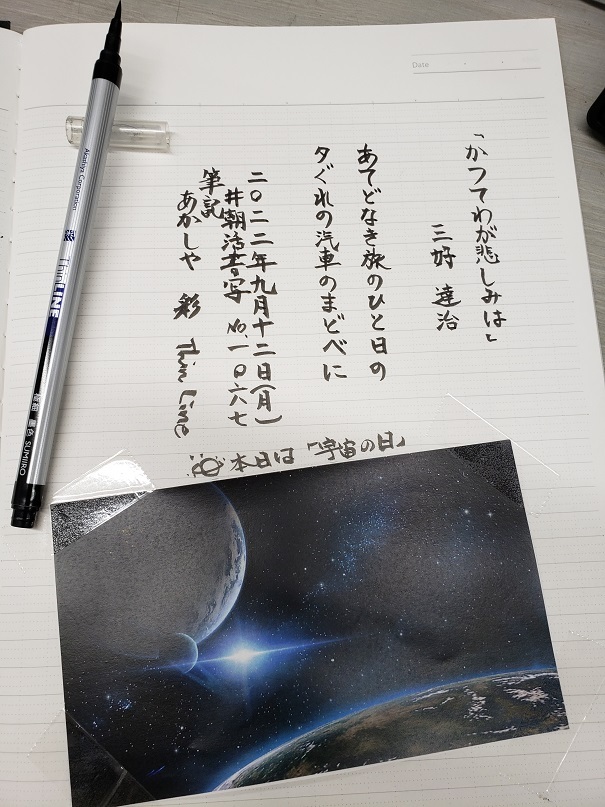 Date
「かつてわが悲しみは」
三好 達治
あてどなき旅のひと日の
夕ぐれの汽車のまどべに
二〇二二年九月十二日(月)
#朝活書写 No.一〇六七
筆記
あかしや 彩 Thin Line
本日は「宇宙の日」
Akashiya Corporation
彩 ThinLINE
極細 墨色 SUMIIRO